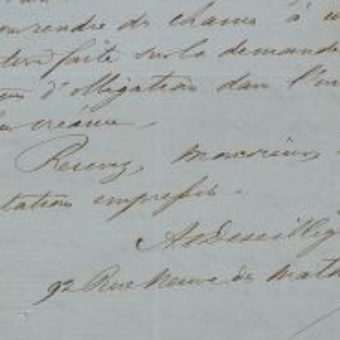 prendre de chances à
faite sur la demande
d'obligation dans l'in
créance.
Recevez, Monsieur,
tation empressée.
92 Rue Neuve des Math